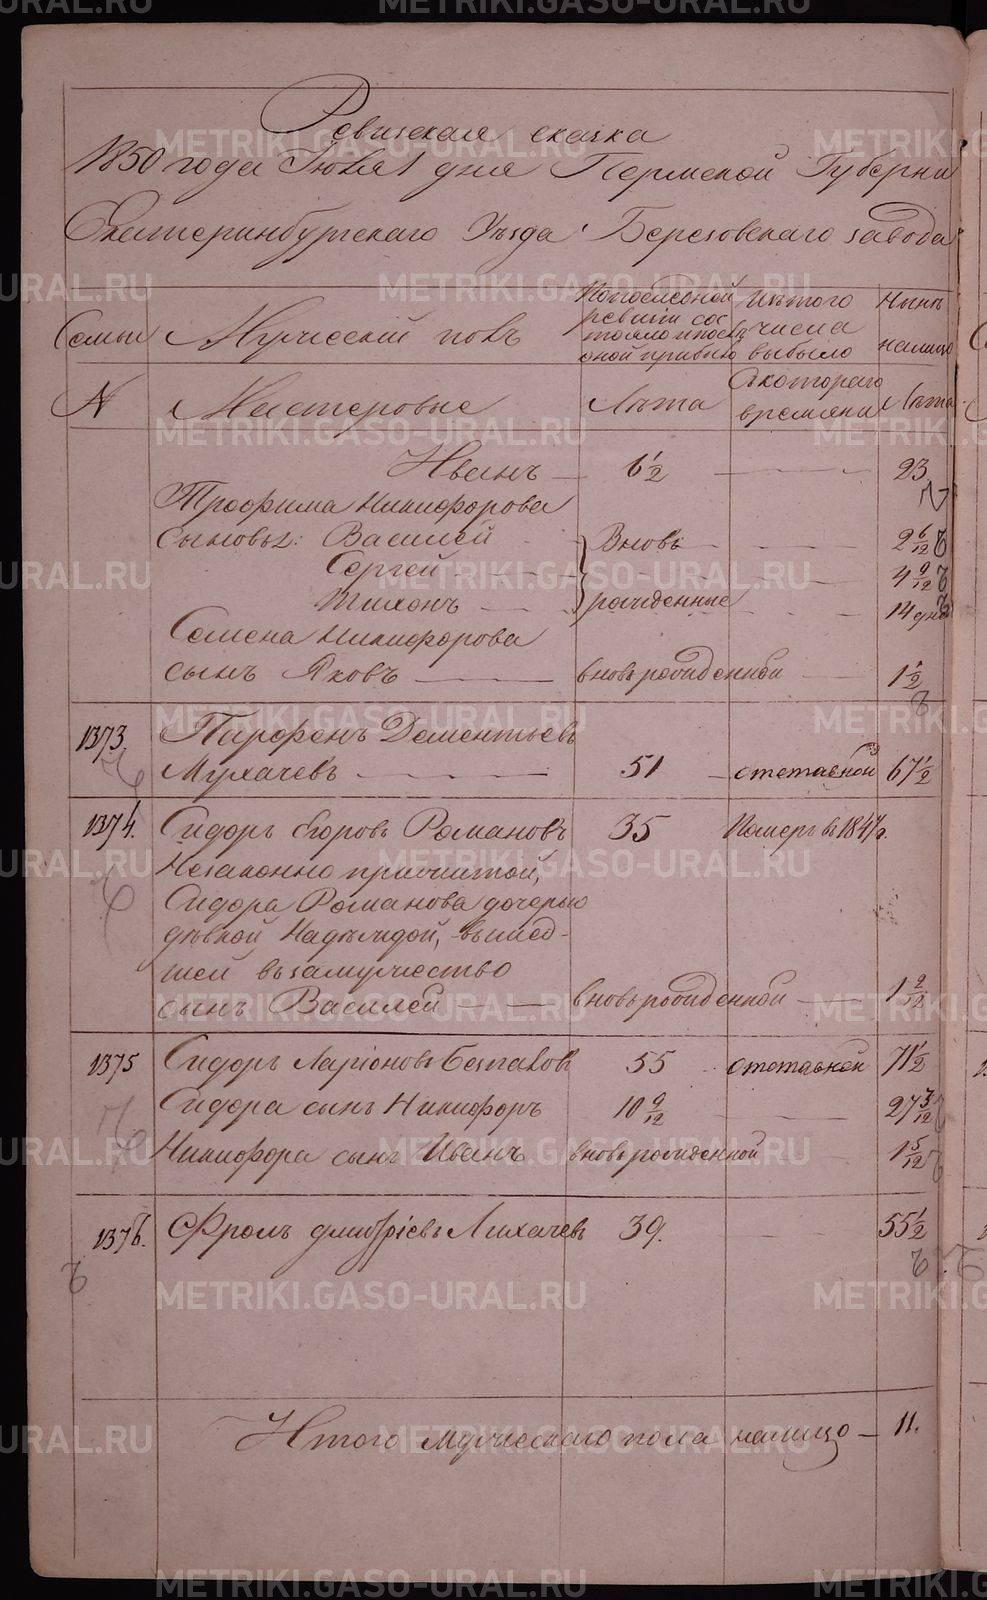 METRIKI.GASO-URAL.RU
Ревизская сказка
1850 года Июля 1 дня Пермской Губернiи
Екатеринбургскаго Уѣзда Березовскаго завода
Семьи
Мужескiй полъ
По последной ревизiи состояло и после оной прибыло
Изъ того числа выбыло
Нынѣ на лицо
N
Мастеровые
Лѣта
Съ котораго времяни
Лѣта
Иванъ — 6 1/2 — 23
Трофима Никифорова
сыновья: Василей - Вновь - 2 6/12
Сергей - 4 9/12
Тихонъ — рожденные - 14 дн.
Семена Никифорова
сынъ Яковъ — вновьрожденной — 1 1/2
1373. Парфенъ Дементьевъ
Мухачевъ — 51 — отставной 67 1/2
1374. Сидоръ Егоровъ Романовъ 35 Померъ в 1847 г.
Незаконно прижитой,
Сидора Романова дочерью
дѣвкой Надѣждой, вышед-
шей въ замужество
сынъ Василей — вновьрожденной — 1
1375 Сидоръ Ларiоновъ 55 отставной 71 1/2
Сидора сынъ Никифоръ 10 9/12 — 27 3/12
Никифора сынъ Иванъ вновьрожденной — 1 5/12
1376. Фролъ Дмитрiевъ Лихачевъ 39. — 55 1/2
Итого мужескаго пола налицо — 11.